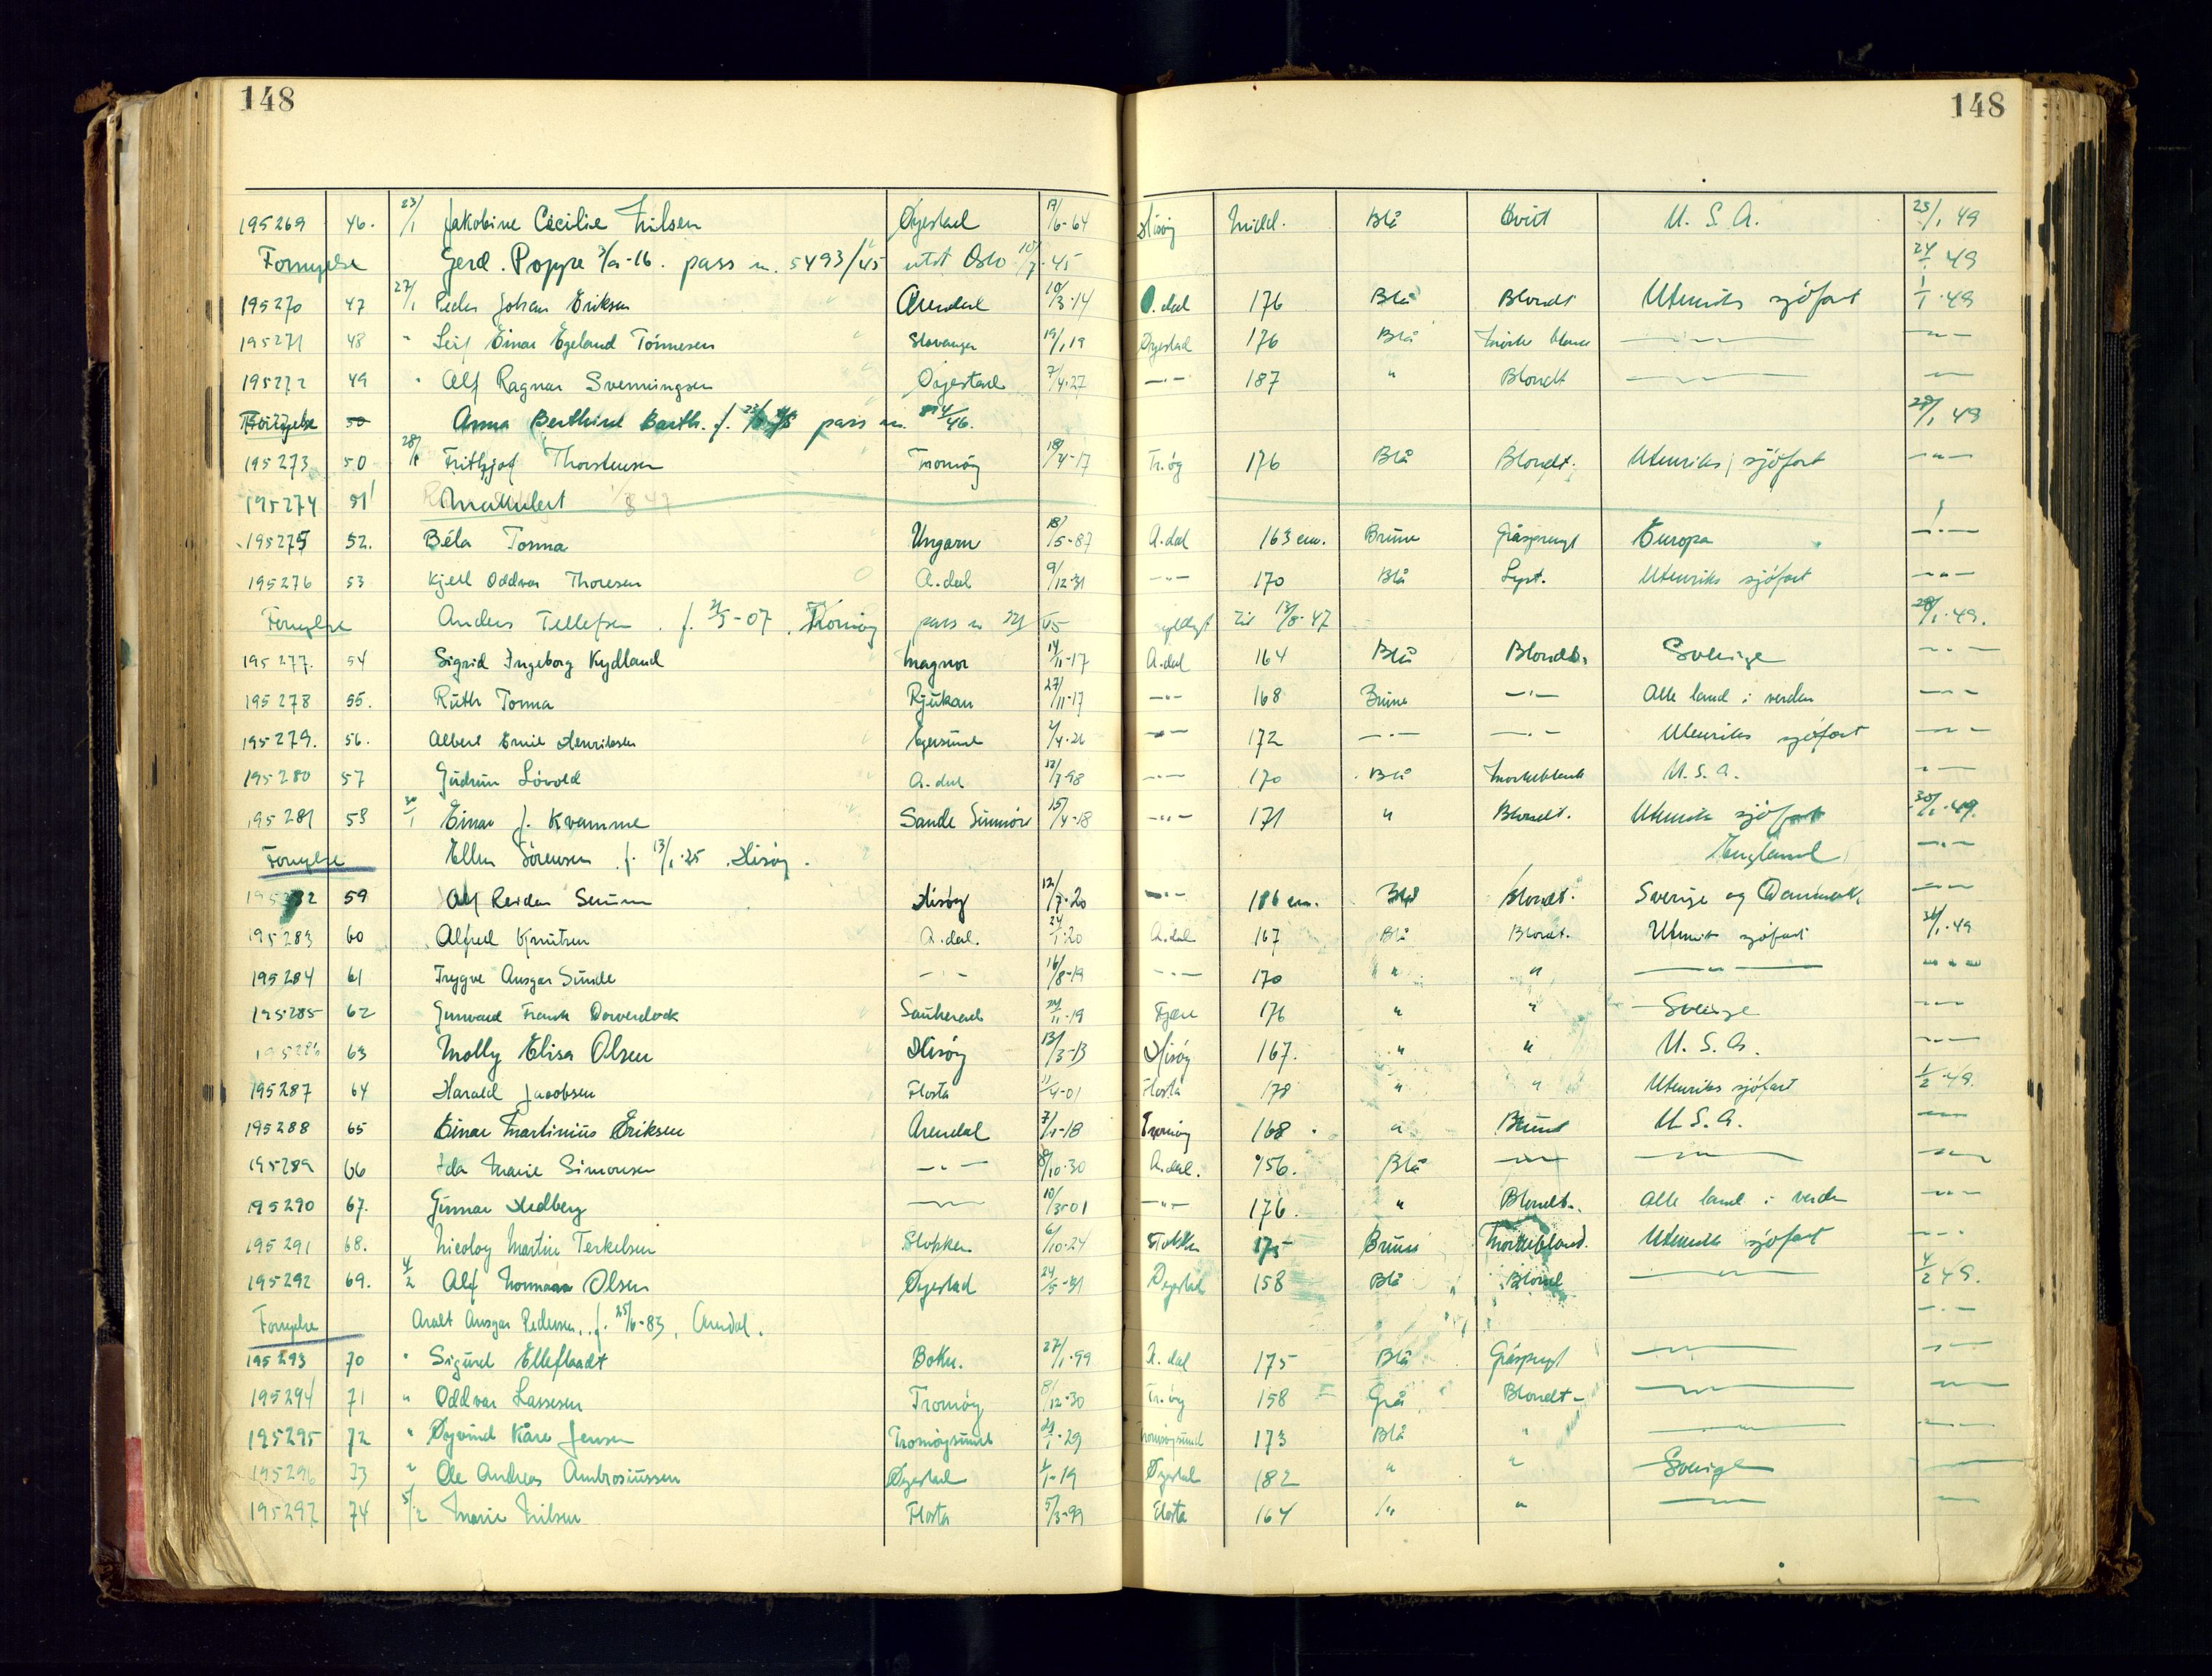 148 148
195269 46. 23/1 Jakobine Cecilie Nilsen Øyestad 17/6-64 Hisøy Midd. Blå Hvit U. S. A. 23/1 49
Fornyelse Gerd. Poppe pass n. 5493/45 utst Oslo 10/7-45 24/1 49
195270 47 27/1 Peder Johan Eriksen Arendal 10/3-14 A.dal 176 Blå Blondt Utenriks sjöfart 49
195271 48 " Leif Einar Egeland Tönnesen Stavanger 19/1 19 Øyestad 176 Blå —"— —"—
195272 49 " Alf Ragnar Svenningsen Øyestad 7/4-27 —"— 187 " Blondt —"— —"—
Fornyelse 50 Anna Berthine Barth. f. pass nr. 46. 28/1 49
195273 50 28/1 Frithjof Thorstensen Tromöy 18/4-17 Tr.öy 176 Blå Blondt. Utenriks sjöfart —"—
195274 51 Makulert
195275 52. Béla Tonna Ungarn 18/5-87 A.dal 163 cm. Brune Gråsprengt Europa —"—
195276 53 Kjell Oddvar Thoresen A.dal 9/12-31 —"— 170 Blå Lyst. Utenriks sjöfart —"—
Fornyelse Anders Tellefsen . f. -07 . Tromöy pass n 45 gyldigt til 13/8-47 28/1-49.
195277. 54 Sigrid Ingeborg Kydland Magnor 14/11-17 A.dal 164 Blå Blondt. Sverige —"—
195278 55. Ruth Tonna Rjukan 27/11-17 —"— 168 Brune —"— Alle land i verden —"—
195279. 56. Albert Emil Henriksen Egersund 2/4-26 —"— 172 —"— —"— Utenriks sjöfart —"—
195280 57 Gudrun Lövold A.dal 12/7-98 —"— 170 Blå Mörkeblondt U. S. A. —"—
195281 58 30/1 Einar J. Kvamme Sande Sunnöre 15/4-18 —"— 171 " Blondt. Utenriks sjöfart 30/1-49.
Fornyelse Ellen Sörensen . f. 13/1-25 Hisöy. England —"—
195282 59 Alf Reidar Hisöy 12/7-20 —"— 186 cm. Blå Blondt. Sverige og Danmark —"—
195283 60 Alfred Knutsen A.dal. 24/1-20 A.dal 167 Blå Blondt. Utenriks sjöfart 31/1-49
195284 61 Trygve Ansgar Sunde —"— 16/8-19 —"— 170 " " —"— —"—
195285 62 Gunvald Frank Sauherad 11-19 Fjære 176 " " Sverige —"—
195286 63 Molly Elisa Olsen Hisöy 13/3-13 Hisöy 167. " " U. S. A. —"—
195287 64 Harald Jacobsen Flosta 11/4-01 Flosta 178 " " Utenriks sjöfart 1/2-49.
195288 65 Einar Martinius Eriksen Arendal 7/1-18 Tromöy 168 " Brunt U. S. A. —"—
195289 66 Ida Marie Simonsen —"— 8/10-30 A.dal. 156. Blå —"— —"— —"—
195290 67. Gunnar Hedberg —"— 10/3-01 —"— 176. " Blondt. Alle land i verden —"—
195291 68. Nicolay Martin Terkelsen Stokken 6/10-24 Stokken 175 Brune Mörkeblond. Utenriks sjöfart —"—
195292 69. 4/2 Alf Normann Olsen Øyestad 24/5-31 Øyestad 158 Blå Blond —"— 4/2 49.
Fornyelse Aralt Ansgar Pedersen, f. 25/6-83, Arendal. —"—
195293 70 " Sigurd Elleflaadt Bokn. 27/1-99 A.dal 175 Blå Gråsprengt —"— —"—
195294 71 " Oddvar Lassesen Tromöy 8/12-30 Tr.öy 158 Grå Blondt —"— —"—
195295 72 " Øyvind Kåre Jensen Tromöysund 1-29 Tromöysund 173 Blå " —"— —"—
195296 73 " Ole Andreas Ambrosiussen Øyestad 1-19 Øyestad 182 " " Sverige —"—
195297 74 5/2 Marie Nilsen Flosta 5/3-99 Flosta 164 " " —"— —"—